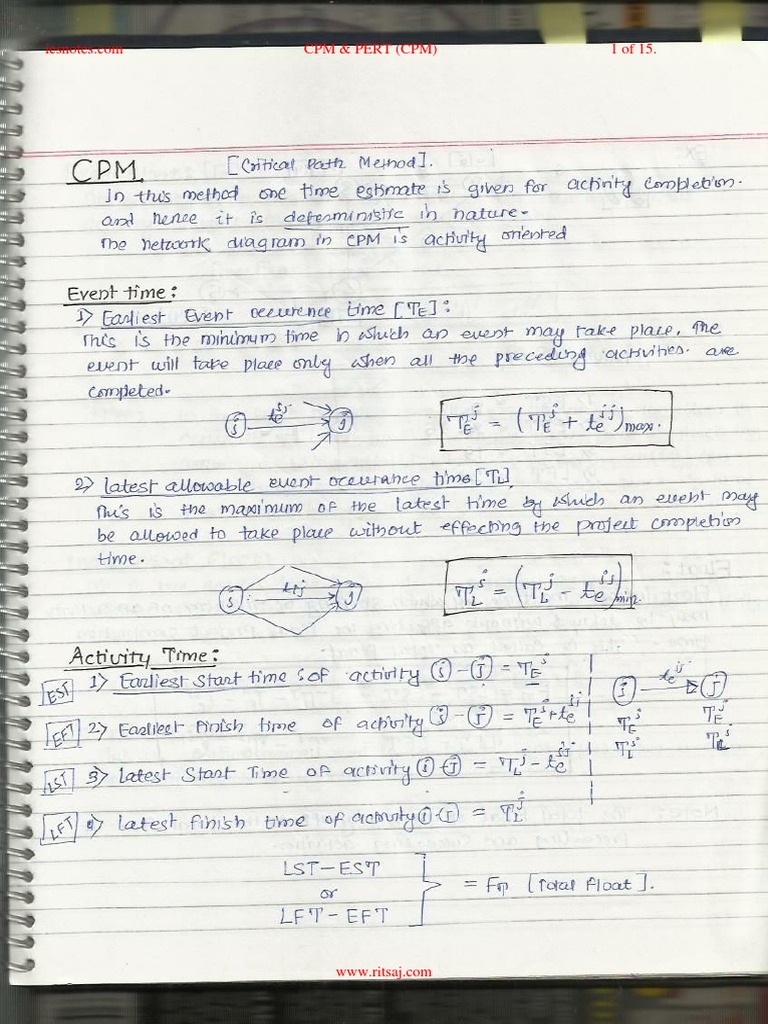 iesnotes.com CPM & PERT (CPM) 1 of 15.
CPM [Critical Path Method].
In this method one time estimate is given for activity completion.
and hence it is deterministic in nature.
The network diagram in CPM is activity oriented
Event time:
1) Earliest Event occurence time [TE]:
This is the minimum time in which an event may take place. The
event will take place only when all the preceding activities are
completed.
i te^ij j TE^j = (TE^i + te^ij)max.
2) Latest allowable event occurance time [TL]
This is the maximum of the latest time by which an event may
be allowed to take place without effecting the project completion
time.
i tij j TL^i = (TL^j - te^ij)min.
Activity Time:
EST 1) Earliest start time of activity i - j = TE^i
EFT 2) Earliest finish time of activity i - j = TE^i + te^ij
LST 3) Latest Start Time of activity i - j = TL^j - te^ij
LFT 4) Latest finish time of activity i - j = TL^j
i te^ij j
TE^i TE^j
TL^i TL^j
LST-EST
or = FT [Total Float].
LFT-EFT
www.ritsaj.com